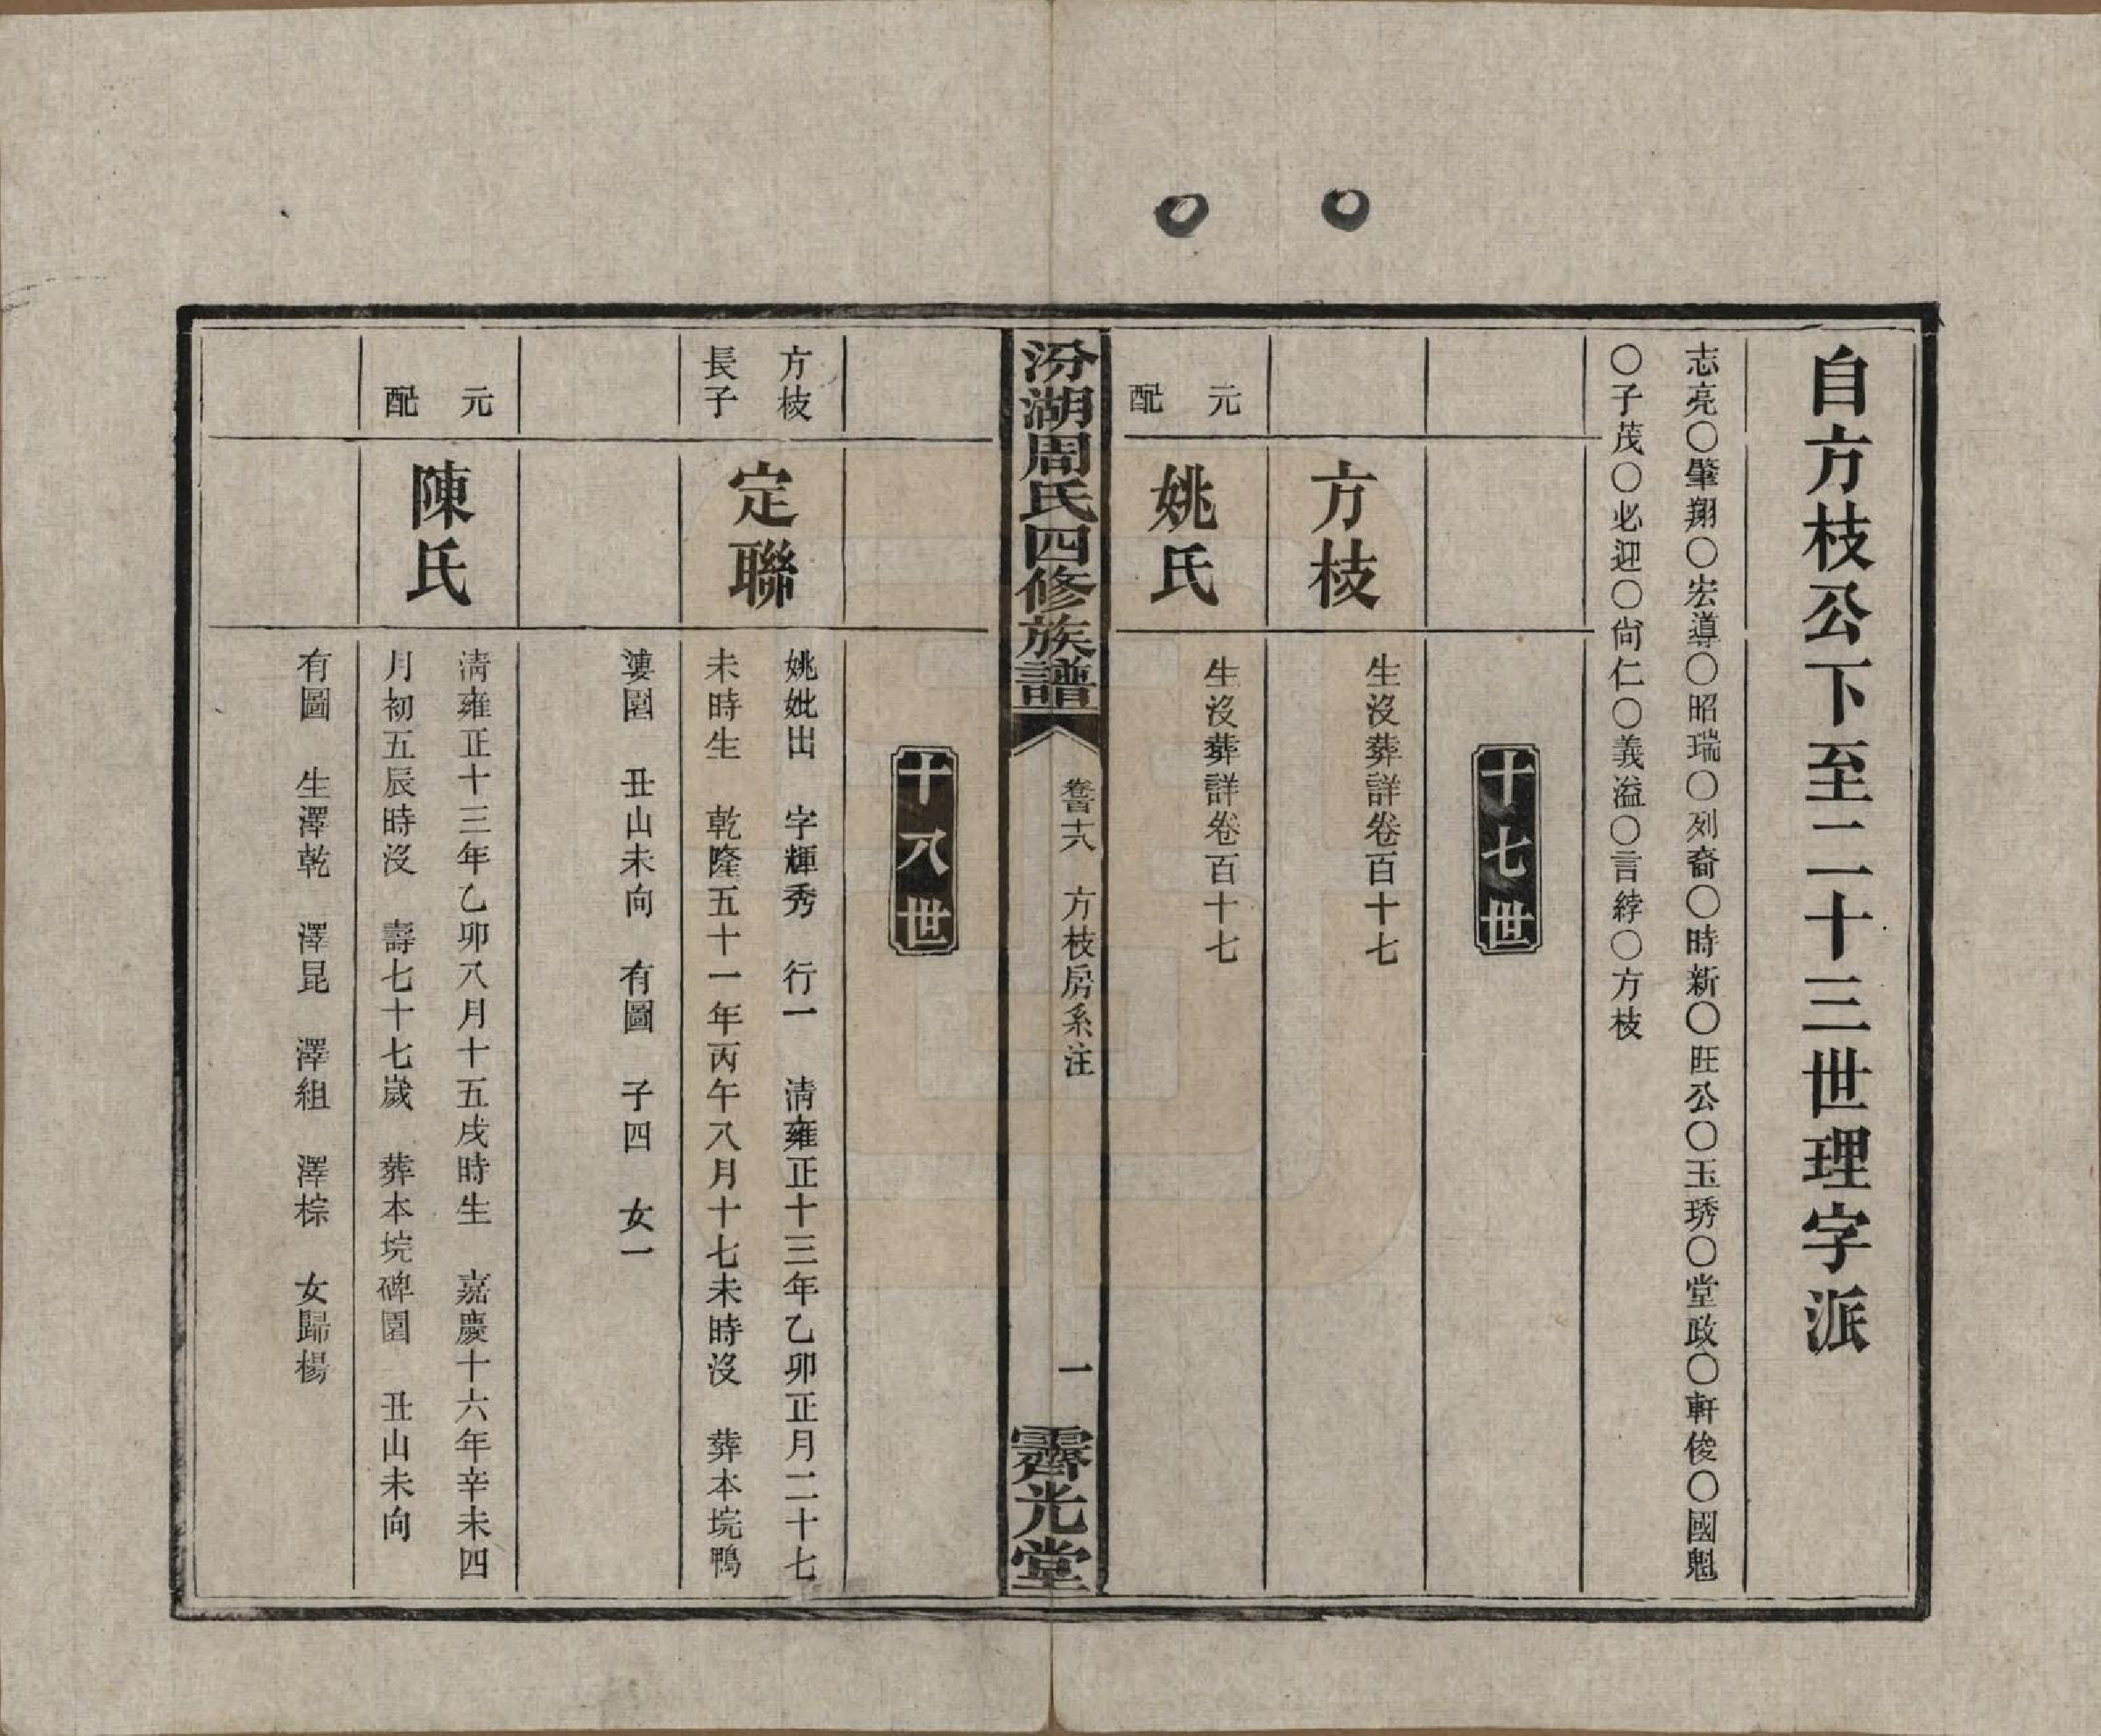 自方枝公下至二十三世理字派
志亮〇肇翔〇宏導〇昭瑞〇列裔〇時新〇旺公〇玉琇〇堂政〇軒俊〇國魁
〇子茂〇必迎〇尙仁〇義溢〇言綍〇方枝
十七世
方枝
生沒葬詳卷百十七
元
配
姚氏
生沒葬詳卷百十七
汾湖周氏四修族譜
卷百十八
方枝房系注
一
霽光堂
十八世
方枝
長子
定聯
姚妣出 字輝秀 行一 清雍正十三年乙卯正月二十七
未時生 乾隆五十一年丙午八月十七未時沒 葬本垸鴨
婁園 丑山未向 有圖 子四 女一
元
配
陳氏
清雍正十三年乙卯八月十五戌時生 嘉慶十六年辛未四
月初五辰時沒 壽七十七歲 葬本垸碑園 丑山未向
有圖 生澤乾 澤昆 澤組 澤棕 女歸楊